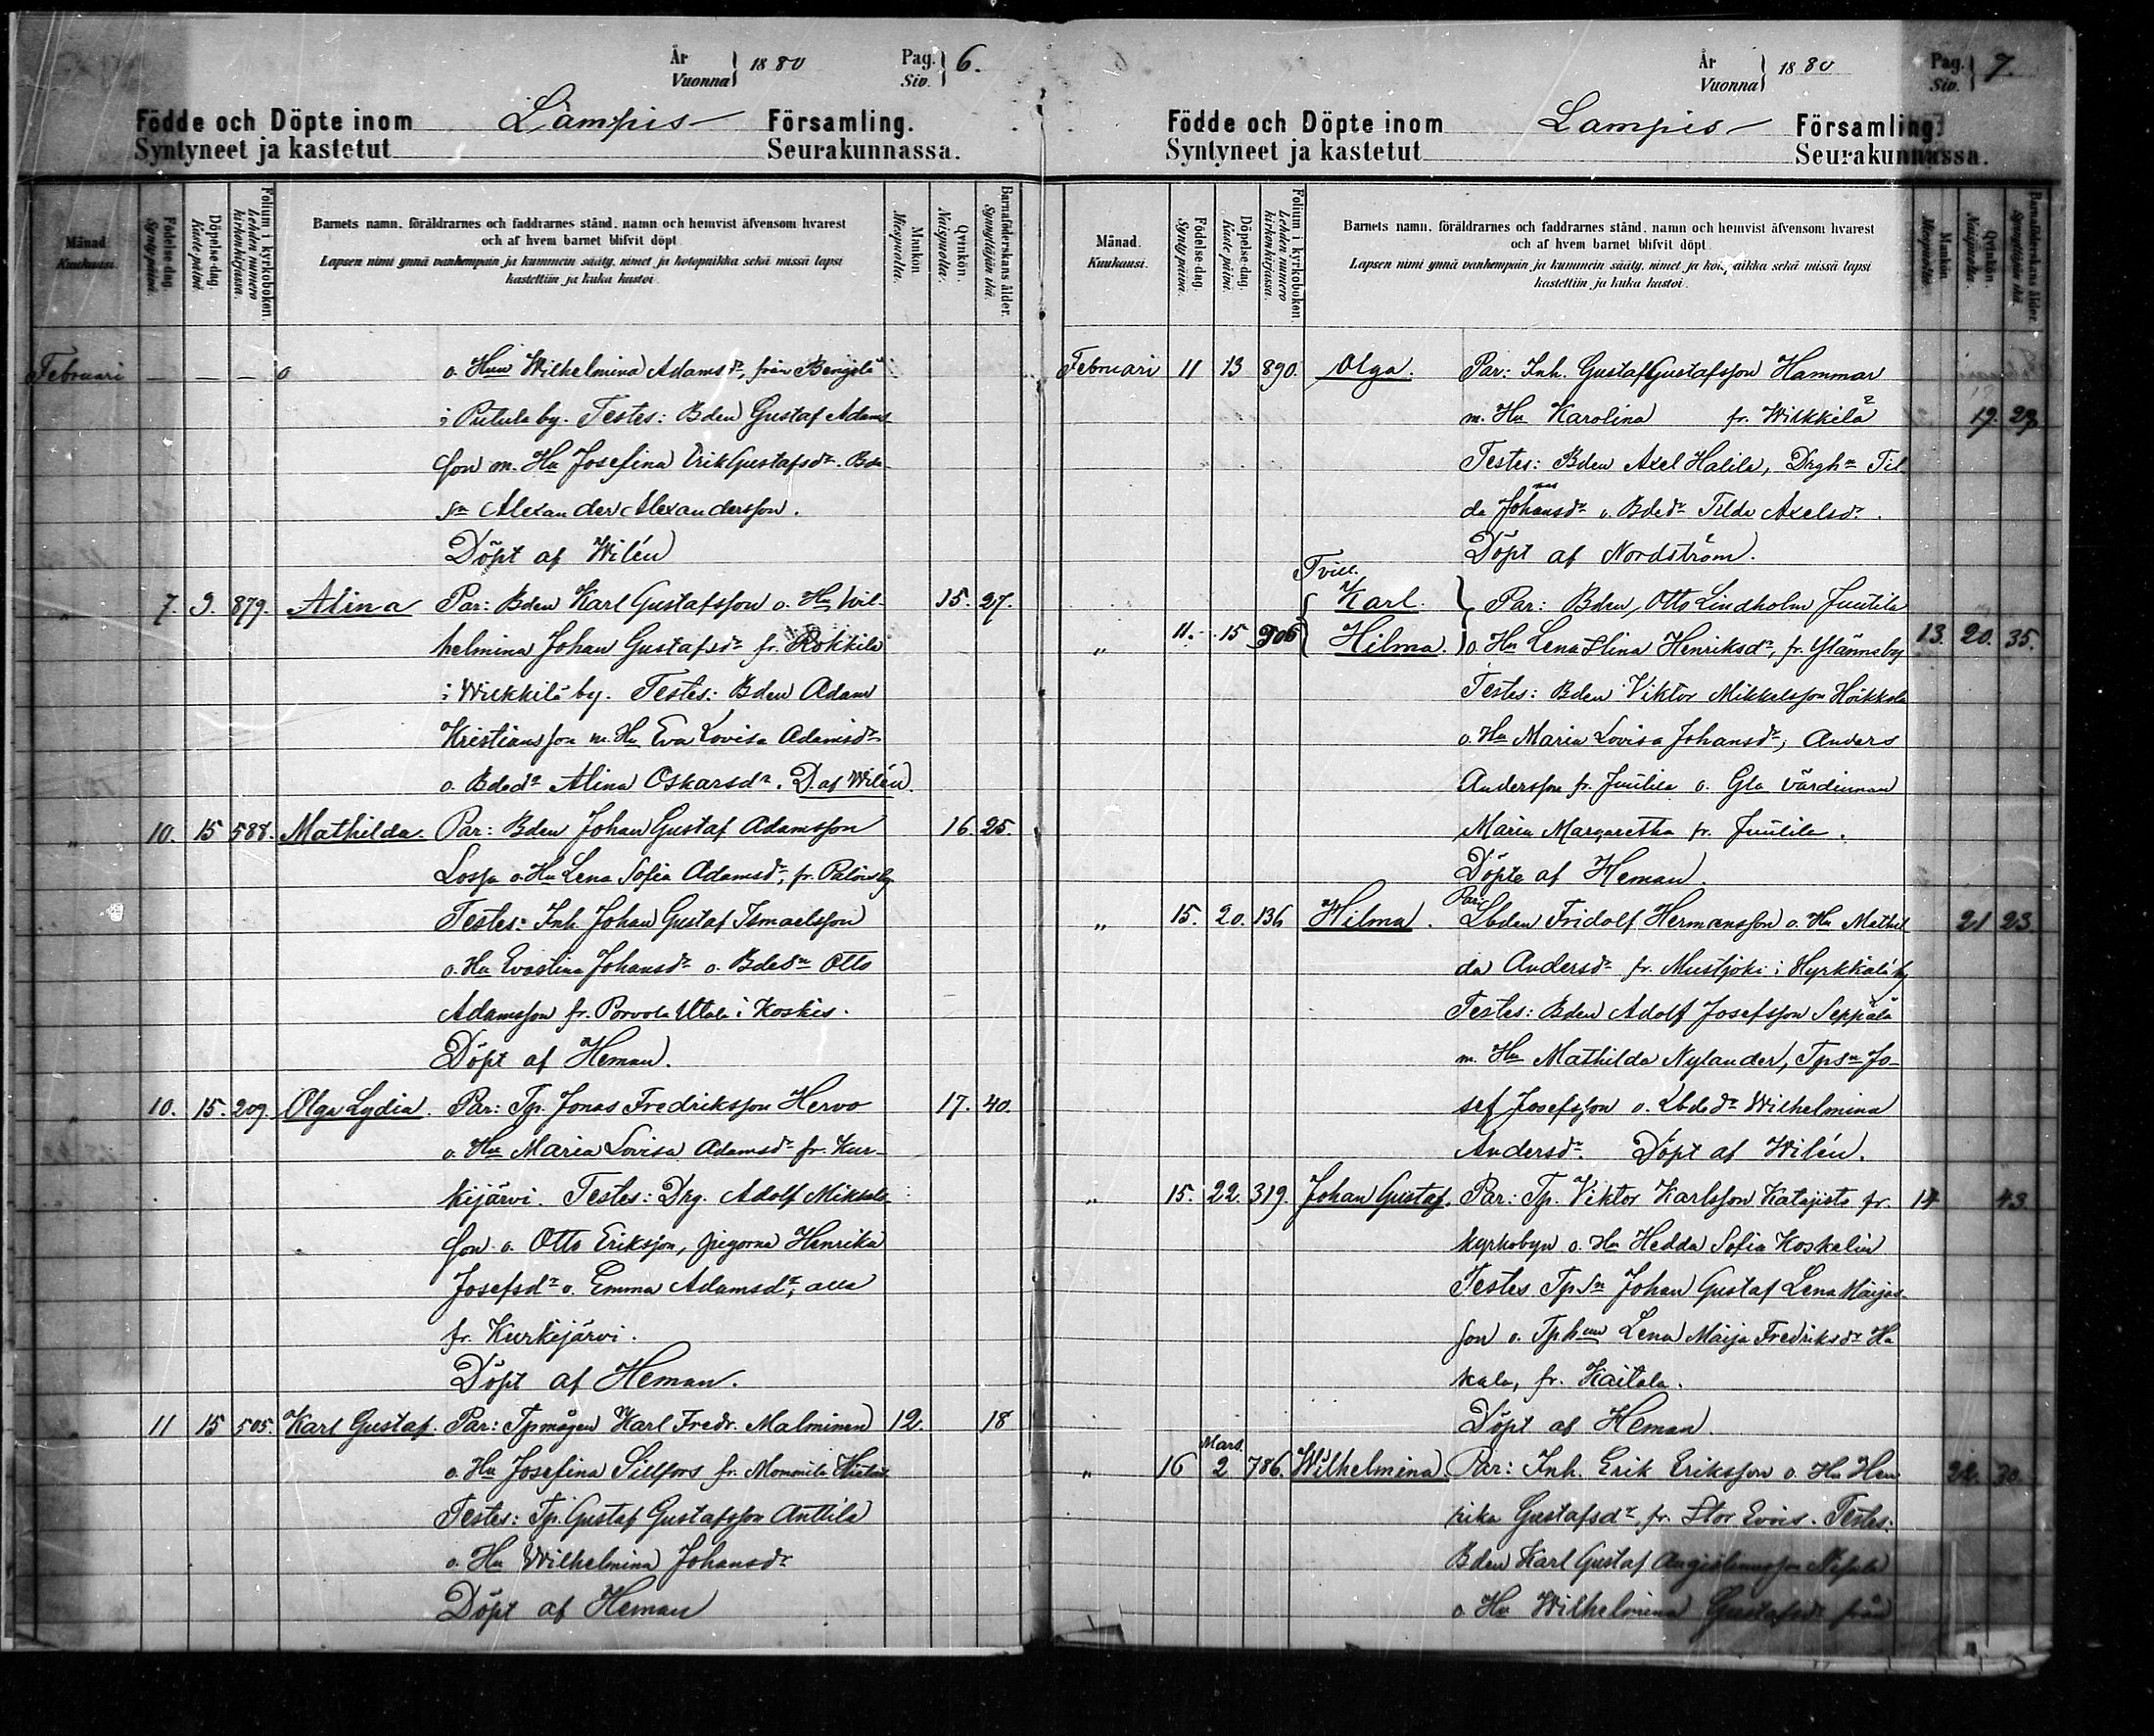 År 1880 Pag. 6.
Vuonna Siv.
Födde och Döpte inom Lampis Församling.
Syntyneet ja kastetut Seurakunnassa.
Månad. Kuukausi.
Födelse-dag. Syntypäivä.
Döpelse-dag. Kastepäivä.
Folium i kyrkoboken. Lehden numero kirkonkirjassa.
Barnets namn, föräldrarnes och faddrarnes stånd, namn och hemvist äfvensom hvarest
och af hvem barnet blifvit döpt.
Lapsen nimi ynnä vanhempain ja kummein sääty, nimet ja kotopaikka sekä missä lapsi
kastettiin ja kuka kastoi.
Mankön. Miespuolia.
Qvinkön. Naispuolia.
Barnaföderskans ålder. Synnyttäjän ikä.
Februari — — — o. Hun Wilhelmina Adamsdr, från Bengola
i Putula by. Testes: Bden Gustaf Adams
son m. Hu Josefina Erik Gustafsdr. Bde
sn Alexander Alexandersson.
Döpt af Wilén
„ 7. 9. 879. Alina Par: Bden Karl Gustafsson o. Hu Wil- 15. 27.
helmina Johan Gustafsdr fr. Rokkila
i Wilkkilä by. Testes: Bden Adam
Kristiansson m. Hu Eva Lovisa Adamsdr
o. Bdedr Alina Oskarsdr. D. af Wilén.
„ 10. 15 588. Mathilda. Par: Bden Johan Gustaf Adamsson 16. 25.
Lossa o. Hu Lena Sofia Adamsdr, fr. Palois by
Testes: Inh. Johan Gustaf Ismaelsson
o. Hu Evastina Johansdr o. Bdesn Otto
Adamsson fr. Porvola Utala i Koskis.
Döpt af Heman.
„ 10. 15. 209. Olga Lydia. Par: Tp. Jonas Fredriksson Hervo 17. 40.
o. Hu Maria Lovisa Adamsdr fr. Kur-
kijärvi. Testes: Drg. Adolf Mikkels
son o. Otto Eriksson, pigorna Henrika
Josefsdr o. Emma Adamsdr, alla
fr. Kurkijärvi.
Döpt af Heman.
„ 11 15 505. Karl Gustaf. Par: Tpmågen Karl Fredr. Malminen 12. 18
o. Hu Josefina Sillfors fr. Mommila
Testes: Tp. Gustaf Gustafsson Anttila
o. Hu Wilhelmina Johansdr
Döpt af Heman
År 1880 Pag. 7.
Vuonna Siv.
Födde och Döpte inom Lampis Församling.
Syntyneet ja kastetut Seurakunnassa.
Månad. Kuukausi.
Födelse-dag. Syntypäivä.
Döpelse-dag. Kastepäivä.
Folium i kyrkoboken. Lehden numero kirkonkirjassa.
Barnets namn, föräldrarnes och faddrarnes stånd, namn och hemvist äfvensom hvarest
och af hvem barnet blifvit döpt.
Lapsen nimi ynnä vanhempain ja kummein sääty, nimet ja kotopaikka sekä missä lapsi
kastettiin ja kuka kastoi.
Mankön. Miespuolia.
Qvinkön. Naispuolia.
Barnaföderskans ålder. Synnyttäjän ikä.
Februari 11 13 890. Olga. Par: Inh. Gustaf Gustafsson Hammar
m. Hu Karolina fr. Wilkkilä 19. 27
Testes: Bden Axel Halila, Drghu Til
da Johansdr o. Bdedr Tilda Axelsdr.
Döpt af Nordström.
Tvill.
Karl. Par: Bden Otto Lindholm Juutila
„ 11. 15 906 Hilma. o. Hu Lena Stina Henriksdr, fr. Ylännsby 13. 20. 35.
Testes: Bden Viktor Mikkelsson Hoikkala
o. Hu Maria Lovisa Johansdr, Anders
Andersson fr. Juutila o. Gla värdinnan
Maria Margaretha fr. Juutila.
Döpte af Heman.
Par:
„ 15. 20. 136 Hilma. Lbden Fridolf Hermansson o. Hu Mathil 21 23.
da Andersdr fr. Mustjoki i Hyrkkälä by
Testes: Bden Adolf Josefsson Seppälä
m. Hu Mathilda Nylander, Tpsn Jo-
sef Josefsson o. Lbdedr Wilhelmina
Andersdr. Döpt af Wilén.
„ 15. 22. 319. Johan Gustaf. Par: Tp. Viktor Karlsson Katajisto fr. 14 43.
kyrkobyn o. Hu Hedda Sofia Koskelin
Testes Tpsn Johan Gustaf Lena Maijas
son o. Tphun Lena Maija Fredriksdr Ha
kala, fr. Kaitala.
Döpt af Heman.
Mars.
„ 16 2 786. Wilhelmina. Par: Inh. Erik Eriksson o. Hu Hen 22. 30.
rika Gustafsdr, fr. Stor Evois. Testes:
Bden Karl Gustaf
o. Hu Wilhelmina Gustafsdr från